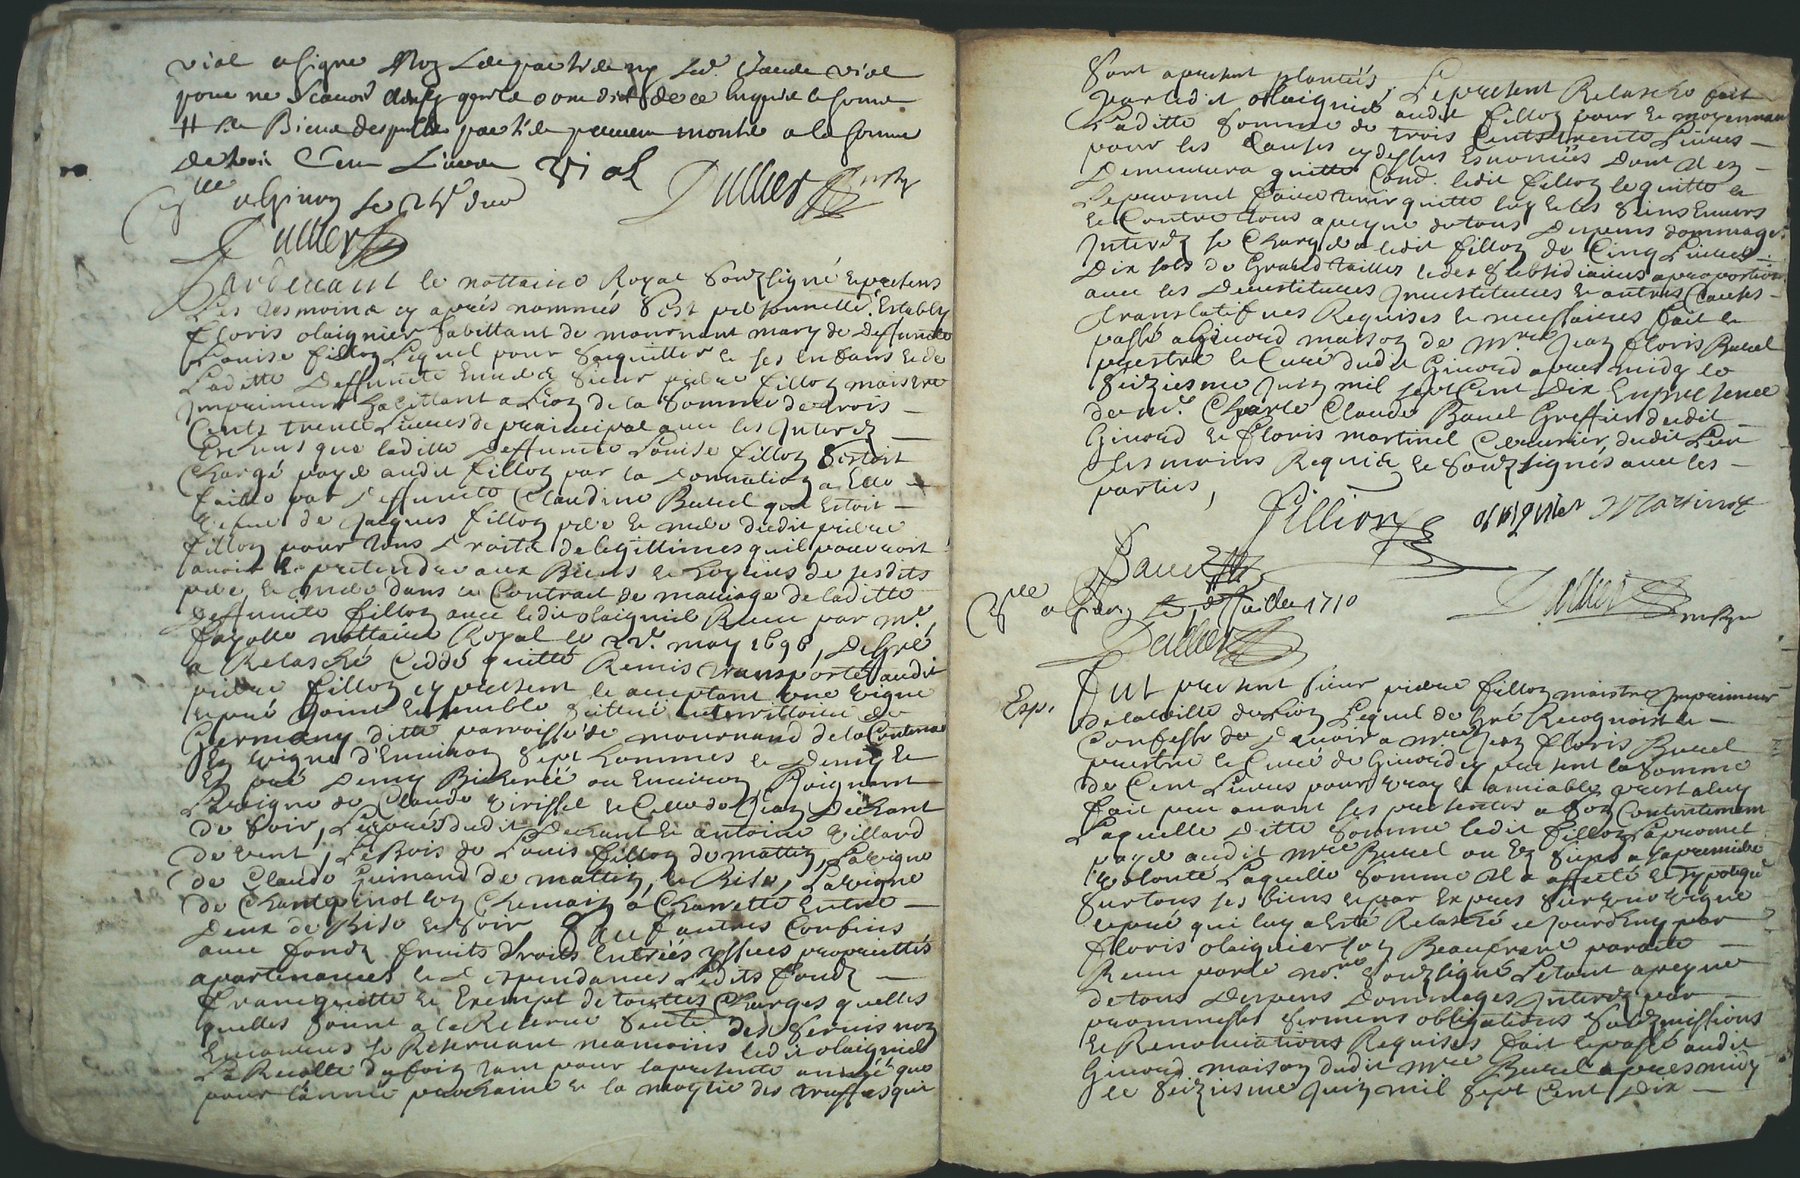 vial a signé non ledit
pour ne scavoir de ce enquis et sommé
de trois Cent Livres Vial Dulher
a Givors le
Dulher
Pardevant le nottaire Royal soubzsigné et presens
Les tesmoins cy apprés nommés s'est personnellem. Estably
floris olaignier habittant de mournant mary de deffuncte
Louise fillon Lequel pour s'aquitter et ses enfans et de
Laditte deffuncte envers sieur pierre fillon maistre
Imprimeur habittant a Lion de la somme de trois
Cents trente Livres de principal avec les Interez
Escheus que laditte deffuncte Louise fillon s'estoit
Chargé payer audit fillon par la donnation a Elle
faitte par deffuncte Claudine Burel qui Estoit
vefve de Jacques fillon pere et mere dudit pierre
fillon pour tous droits de legittimes quil pouvoit
avoir et pretendre aux Biens et hoyries de sesdits
pere et mere dans le Contract de mariage de laditte
deffuncte fillon avec ledit olaignier Receu par Mr.
fayolle nottaire Royal le may 1696, de gré
a Relasché Ceddé quitté Remis transporté audit
pierre fillon cy present et acceptant une vigne
et pré joint Ensemble scittué au territtoire de
Germany ditte parroisse de mournand de la Contenue
En vigne d'Environ sept hommes et demy et
En pré demy Bicherée ou Environ Joignant
La vigne de Claude et Celle de Jean dechant
de soir, Le pré dudit dechant et antoine villard
de vent, Le Bois de Louis fillon de matin, La vigne
de Claude Guinand de matin, et Bise, La vigne
de un Chemin a Charrette Entre
deux de Bise et soir sauf autres Confins
avec fondz fruits droits Entrées yssues proprietés
apartenances et dependances Lesdits fondz
franc quitte et Exempt de touttes Charges quelles
quelles soient a la Reserve des servis non
Encourus se Reservant neamoins ledit olaignier
La Recolte du foin tant pour la presente année que
pour l'année prochaine et la moytié des truffes qui
sont a present plantées. Le present Relasché fait
par ledit olaignier audit fillon pour et moyennant
Laditte somme de trois Cents trente Livres
pour les Causes cy dessus Enoncées dont il en
demeurera quitte Comm. ledit fillon le quitte et
le promet faire tenir quitte luy et les siens Envers
et Contre tous a peyne de tous despens dommages
Interez se Charge ledit fillon de Cinq Livres
dix sols de Grand tailles et des subsidiaires a proportion
avec les devestitures Investitures et autres Clauses
translatifves Requises et necessaires fait et
passé a Givord maison de Mre Jean floris Burel
prestre et Curé dudit Givord apres midy le
seiziesme Juin mil sept Cent dix En presence
de Mr. Charle Claude Bauel Greffier dudit
Givord et floris martinel dudit Lieu
tesmoins Requis et soubzsignés avec les
parties,
fillion olagnier Martinel
Bauel
Dulher
a Givors le Juillet 1710
Dulher
Exp. fut present sieur pierre fillon maistre Imprimeur
de la ville de Lion Lequel de gré Recognoit et
Confesse de devoir a Mre Jean floris Burel
prestre et Curé de Givord cy present la somme
de Cent Livres pour vray et amiable prest a luy
fait peu avant ses presentes a son Contentement
Laquelle ditte somme ledit fillon La promet
payer audit Mre Burel ou Es siens a sa premiere
volonté Laquelle somme Il a affecté et hypotequé
sur tous ses biens et par Expres sur une vigne
et pré qui luy a esté Relasché ce jourdhuy par
floris olaignier son Beaufrere par acte
Receu par le nore. soubzsigné Le tout a peyne
de tous despens dommages Interez par
prommesses sermens obligations soubzmissions
et Renonciations Requises fait et passé audit
Givord maison dudit Mre Burel apres midy
le seiziesme Juin mil sept Cent dix